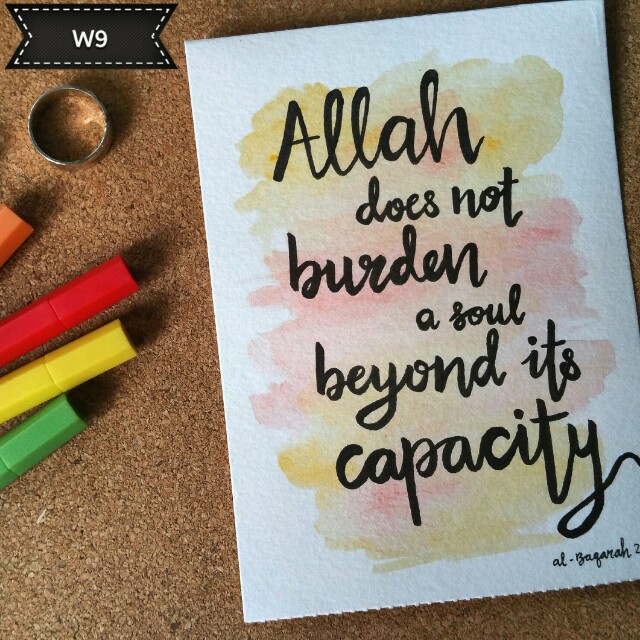 W9
Allah
does not
burden
a soul
beyond its
capacity
al-Baqarah 2